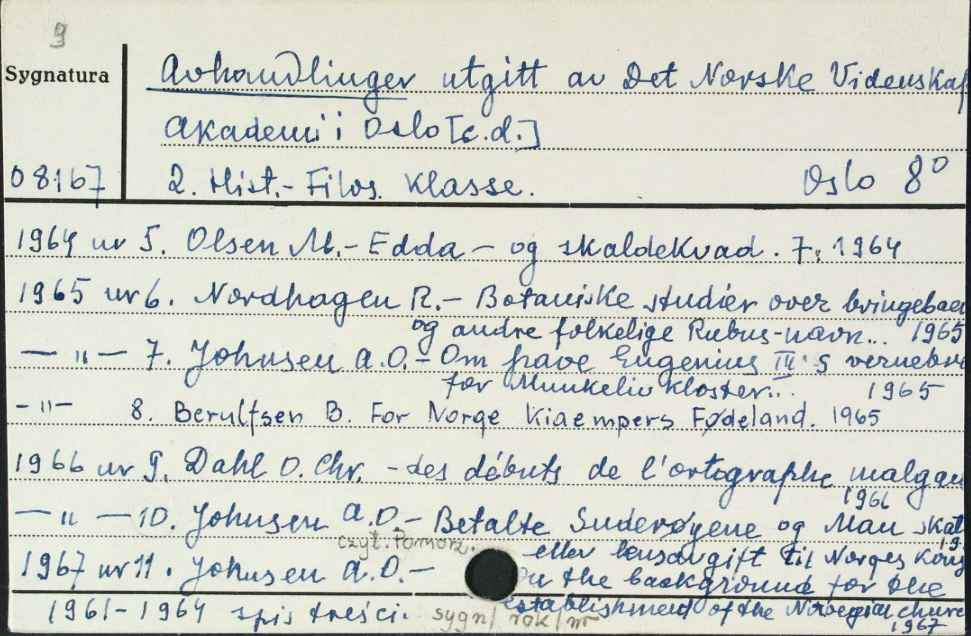 9
Sygnatura
Avhandlinger utgitt av Det Norske Videnskap
Akademi i Oslo [c.d.]
08167
2. Hist.- Filos. Klasse. Oslo 8°
1964 nr 5. Olsen M.- Edda- og skaldekvad. 7, 1964
1965 nr 6. Nordhagen R.- Botaniske studier over bringebaer
og andre folkelige Rubus-navn... 1965
— " — 7. Johnsen A.O.- Om pave Eugenius III's vernebre
for Munkeliv kloster... 1965
- " - 8. Berulfsen B. For Norge Kiaempers Fødeland. 1965
1966 nr 9. Dahl O. Chr. - des débuts de l'ortographe malgac
1966
— " — 10. Johnsen A.O.- Betalte Suderøyene og Man skat
eller lensavgift til Norges Kong 19
czyt. Pomorz.
1967 nr 11. Johnsen A.O.- On the background for the
establishment of the Norwegian churc
1967
1961-1964 spis treści. sygn/ rok/ nr